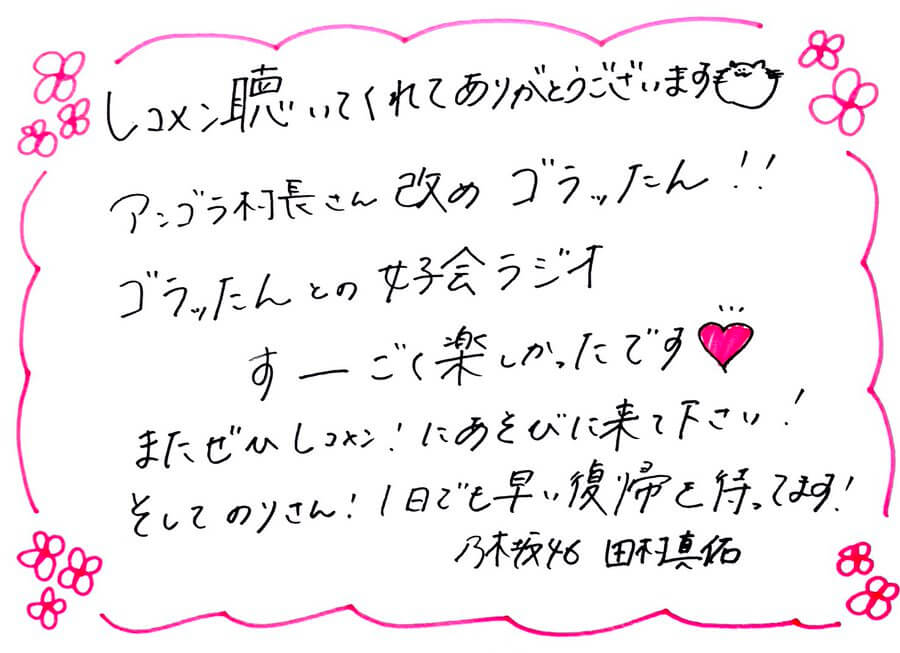 レコメン聴いてくれてありがとうございます
アンゴラ村長さん 改め ゴラッたん!!
ゴラッたんとの女子会ラジオ
すーごく楽しかったです
またぜひレコメン!にあそびに来て下さい!
そしてのりさん!1日でも早い復帰を待ってます!
乃木坂46 田村真佑